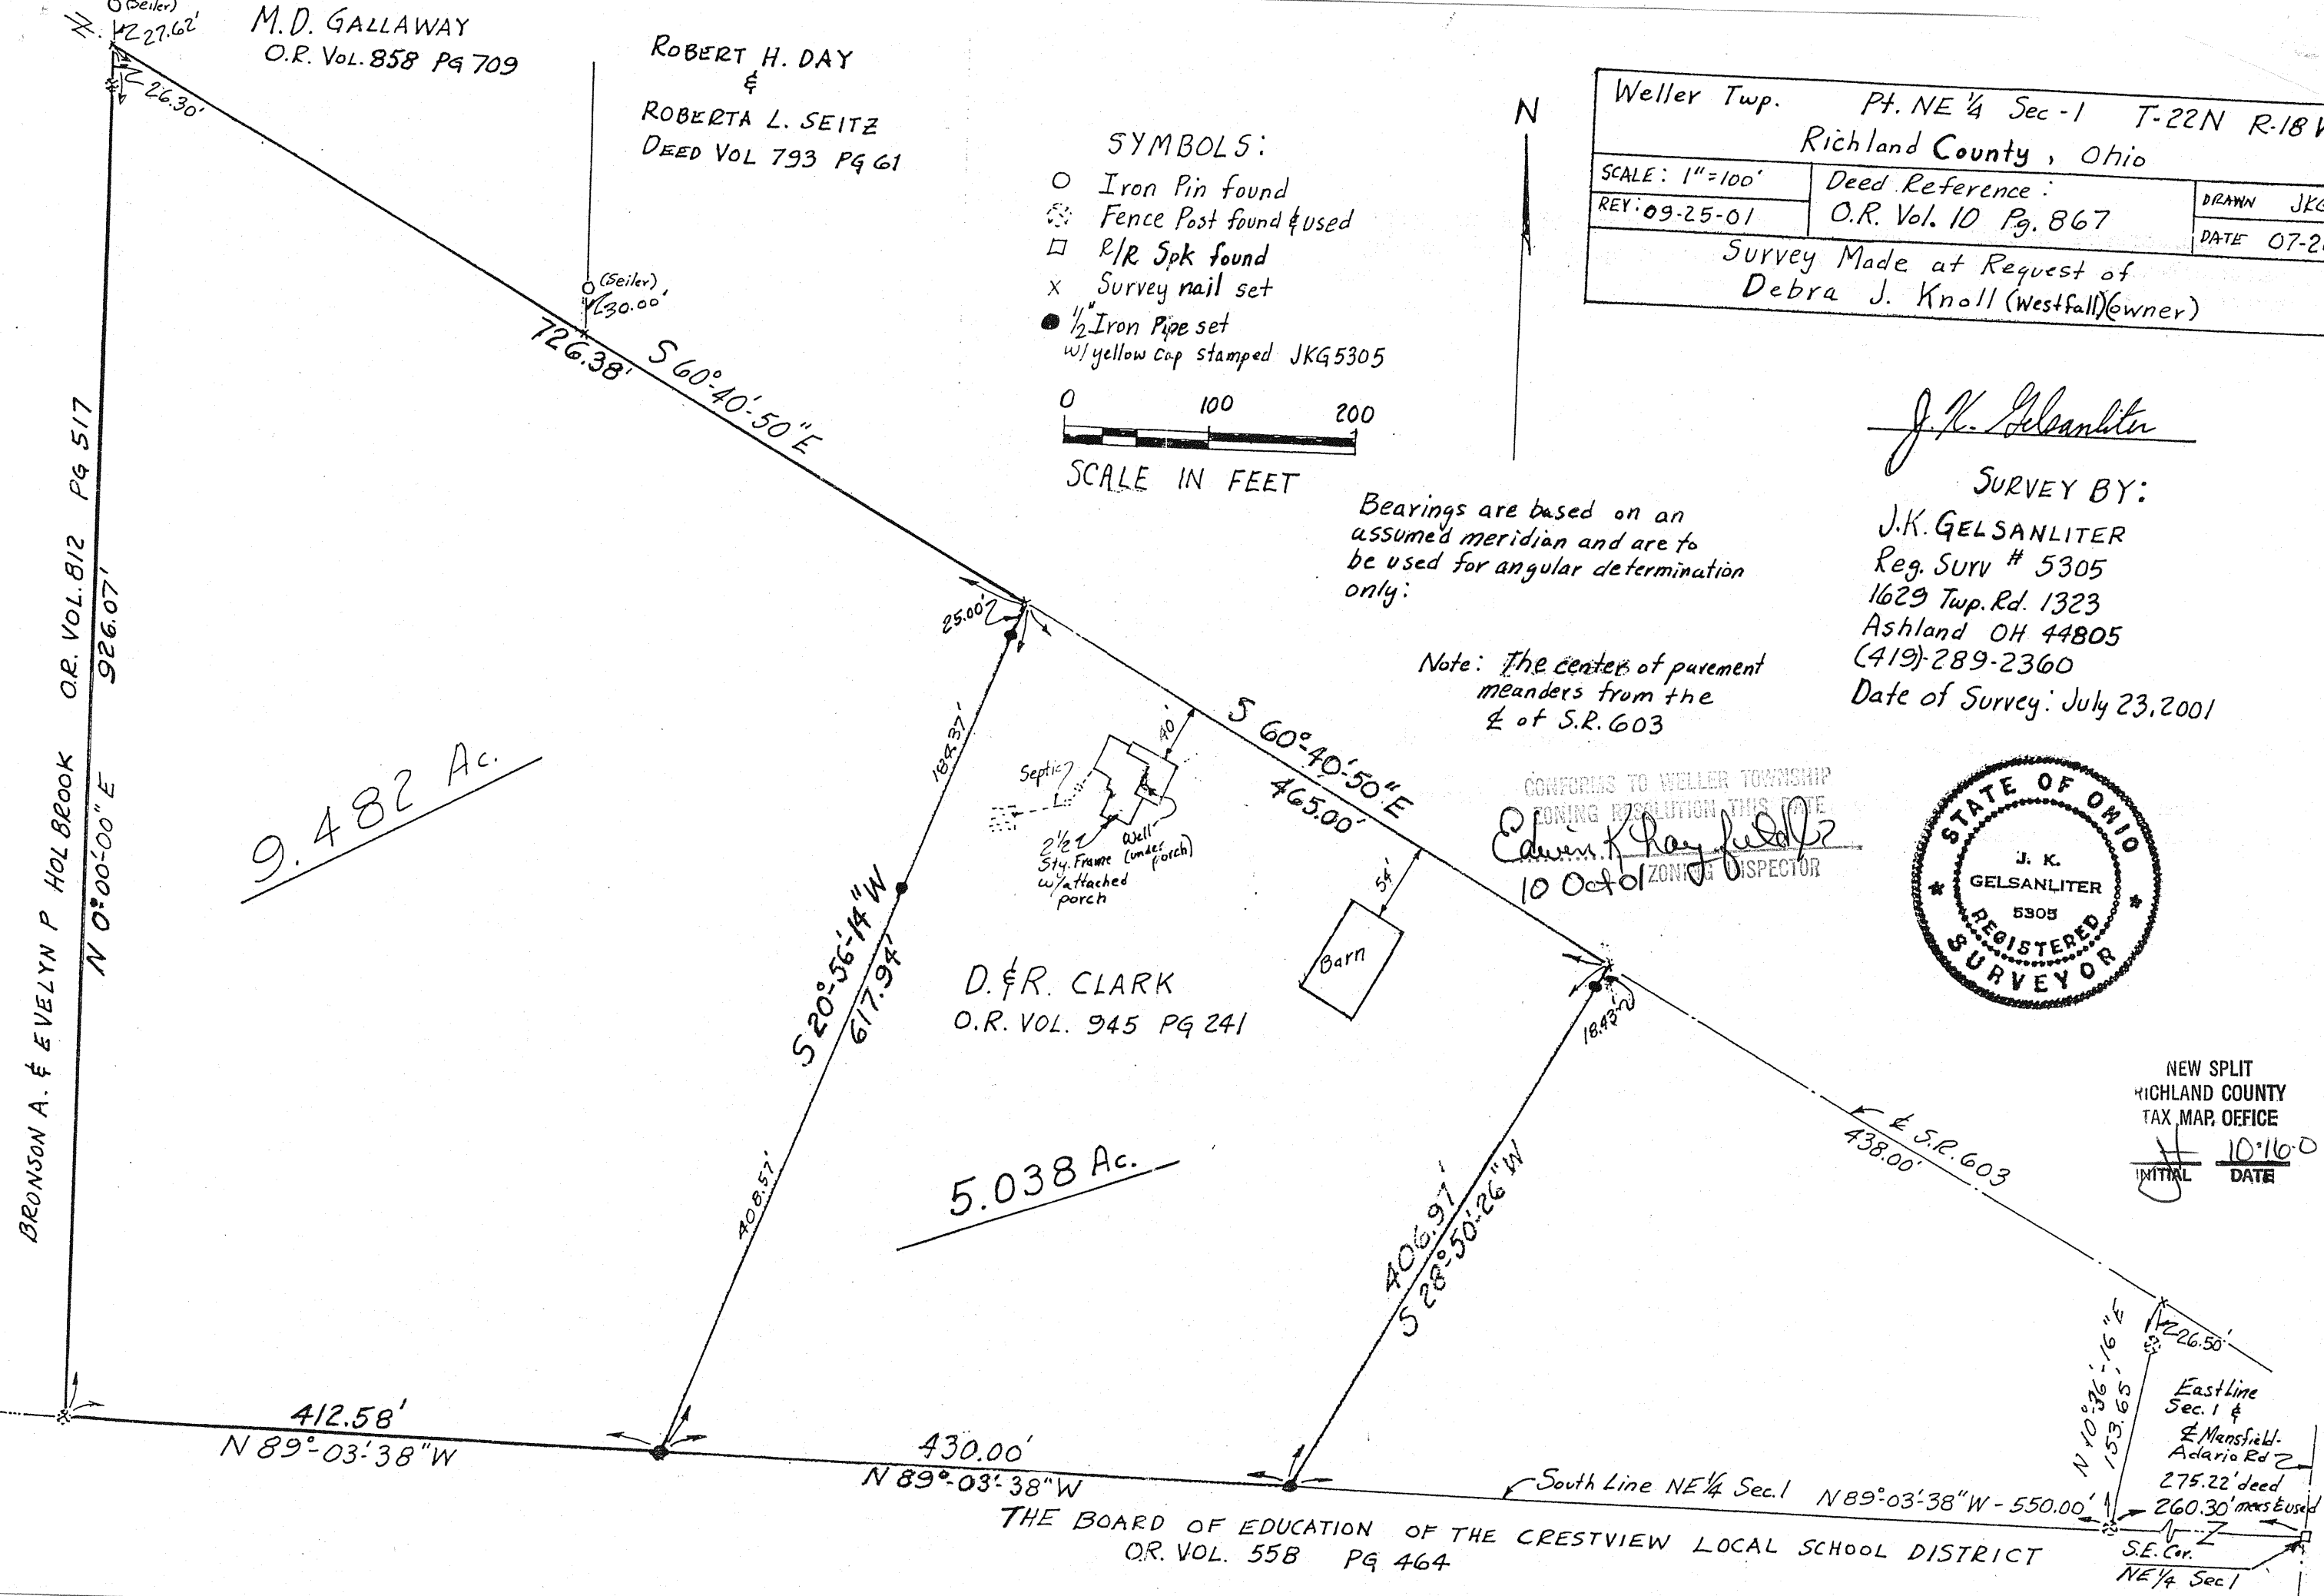 (Seiler)
27.62'
26.30'
M.D. GALLAWAY
O.R. VOL. 858 PG 709
ROBERT H. DAY
&
ROBERTA L. SEITZ
DEED VOL 793 PG 61
(Seiler)
30.00'
726.38'
S 60°-40'-50" E
SYMBOLS:
Iron Pin found
Fence Post found & used
R/R Spk found
x Survey nail set
1/2" Iron Pipe set
w/ yellow cap stamped JKG5305
0 100 200
SCALE IN FEET
N
Weller Twp. Pt. NE 1/4 Sec-1 T-22N R-18
Richland County, Ohio
SCALE: 1"=100'
REV: 09-25-01
Deed Reference:
O.R. Vol. 10 Pg. 867
DRAWN JKG
DATE 07-2
Survey Made at Request of
Debra J. Knoll (Westfall)(owner)
J.K. Gelsanliter
SURVEY BY:
J.K. GELSANLITER
Reg. Surv # 5305
1629 Twp. Rd. 1323
Ashland OH 44805
(419)-289-2360
Date of Survey: July 23, 2001
Bearings are based on an
assumed meridian and are to
be used for angular determination
only:
Note: The center of pavement
meanders from the
℄ of S.R. 603
CONFORMS TO WELLER TOWNSHIP
ZONING RESOLUTION THIS DATE
10 Oct 01 ZONING INSPECTOR
STATE OF OHIO
J. K.
GELSANLITER
5305
REGISTERED
SURVEYOR
NEW SPLIT
RICHLAND COUNTY
TAX MAP OFFICE
10-16-0
INITIAL DATE
BRONSON A. & EVELYN P HOLBROOK O.R. VOL. 812 PG 517
N 0°-00'-00" E 926.07'
9.482 Ac.
25.00'
184.37'
S 20°-56'-14" W
617.94'
408.57'
Septic
40'
2 1/2
Sty. Frame
w/attached
porch
Well
(under
porch)
S 60°-40'-50" E
465.00'
54'
Barn
D. & R. CLARK
O.R. VOL. 945 PG 241
5.038 Ac.
18.43'
406.97'
S 28°-50'-26" W
℄ S.R. 603
438.00'
26.50'
N 10°-36'-16" E
153.65'
East line
Sec. 1 &
℄ Mansfield-
Adario Rd
275.22' deed
260.30' meas & used
412.58'
N 89°-03'-38" W
430.00'
N 89°-03'-38" W
South Line NE 1/4 Sec. 1 N 89°-03'-38" W - 550.00'
THE BOARD OF EDUCATION OF THE CRESTVIEW LOCAL SCHOOL DISTRICT
O.R. VOL. 558 PG 464
S.E. Cor.
NE 1/4 Sec 1